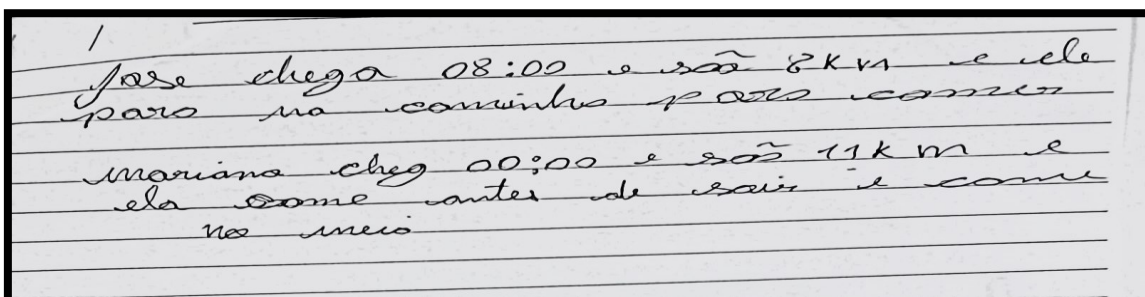 Jose chega 08:00 e são 8 km e ele
para no caminho para comer
mariana cheg 00:00 e são 11 k m e
ela come antes de sair e come
no meio